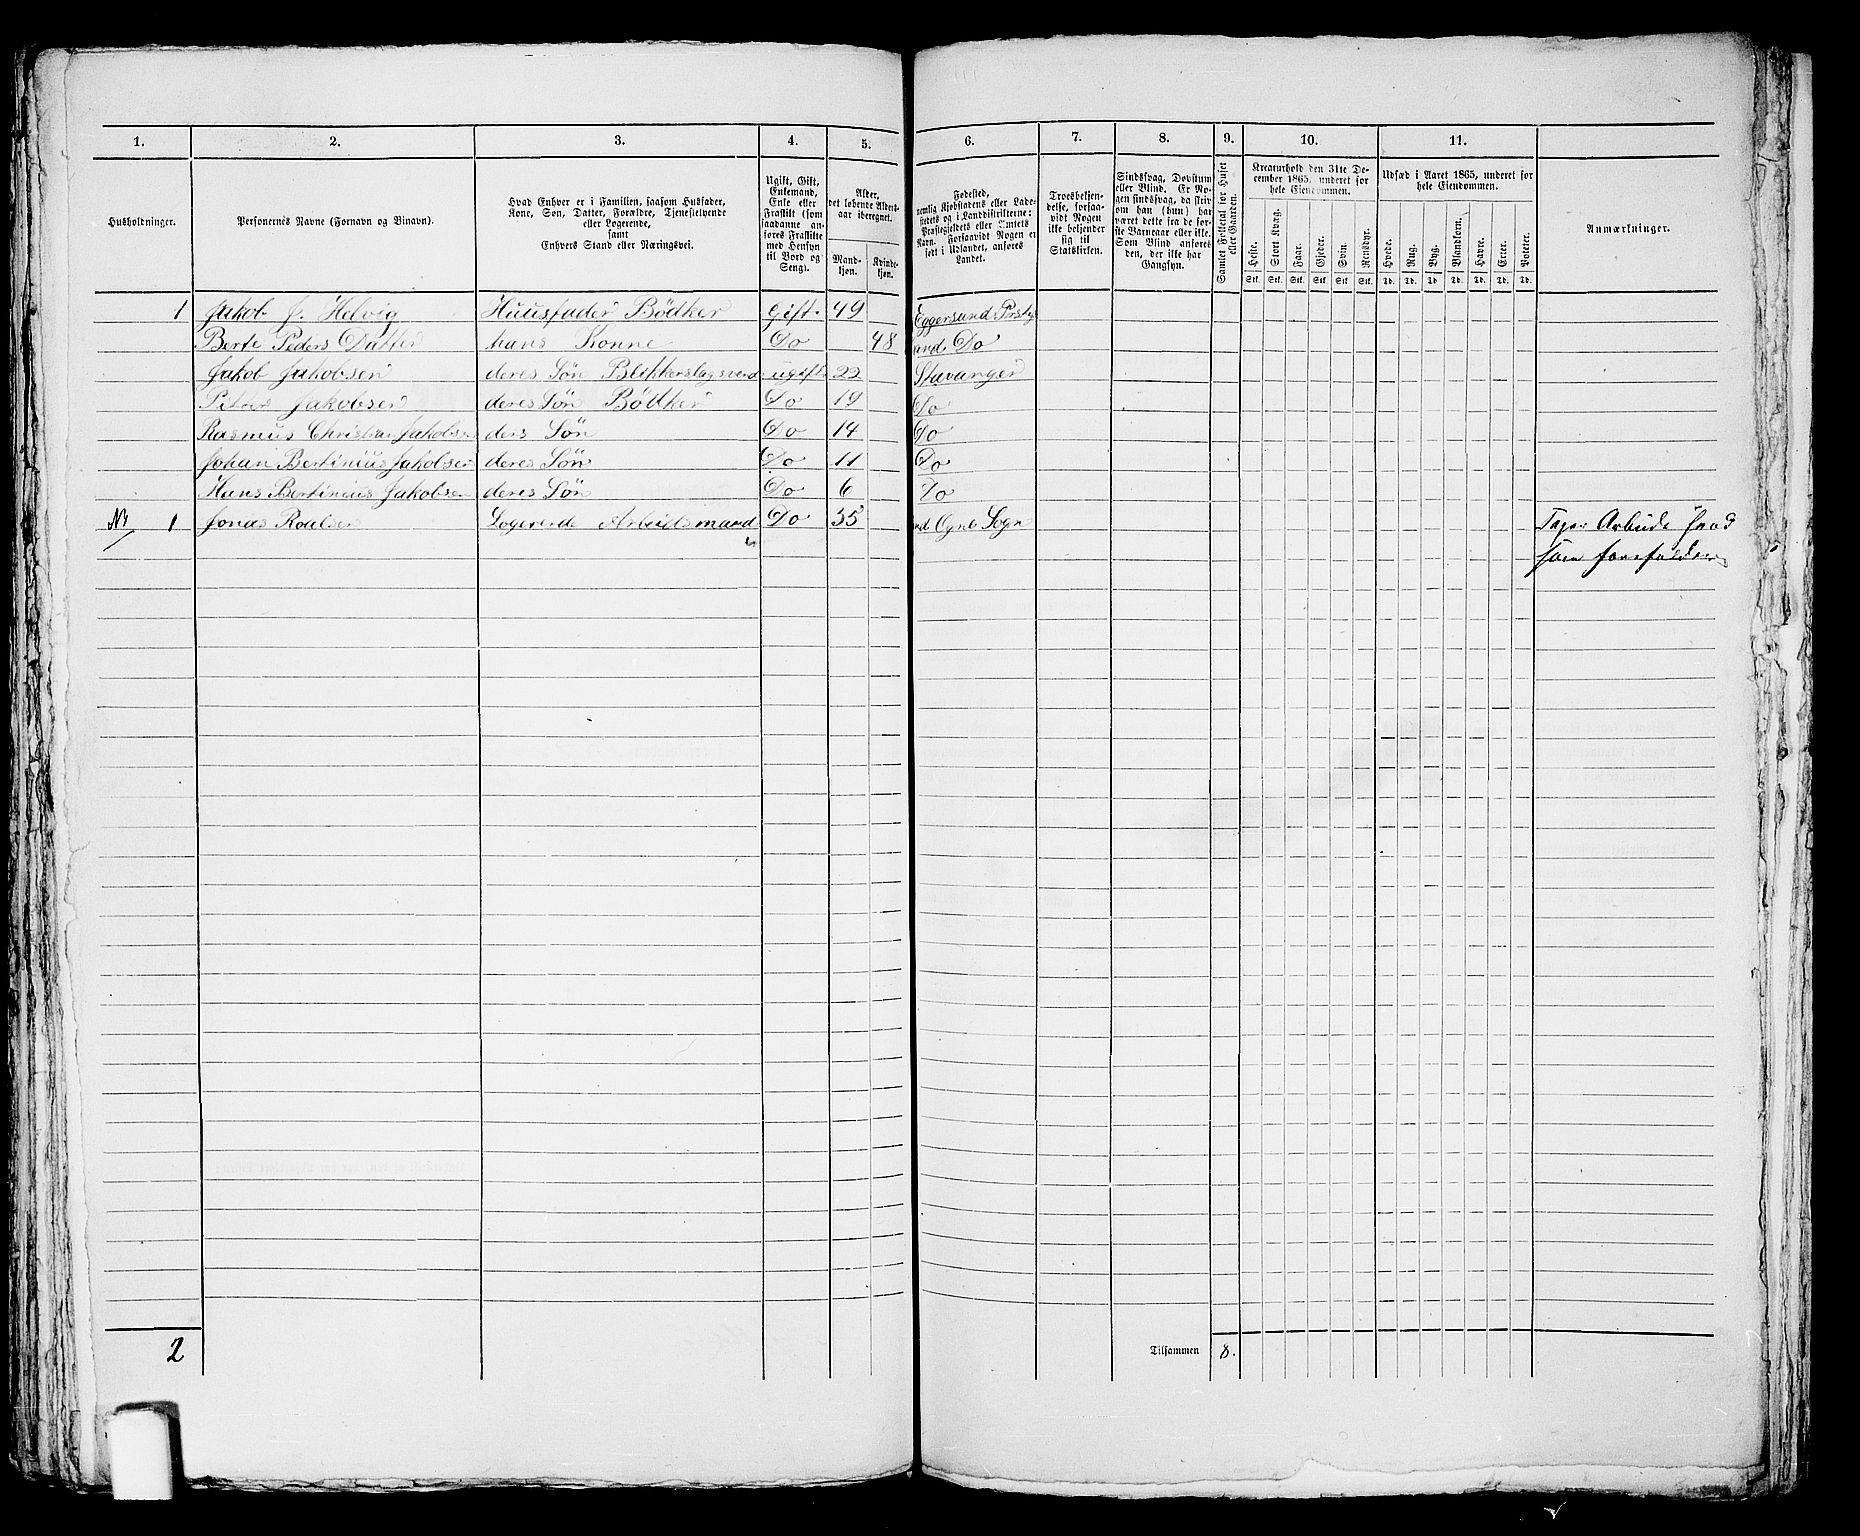 1. 2. 3. 4. 5. 6. 7. 8. 9. 10. 11.
Husholdninger.
Personernes Navne (Fornavn og Binavn).
Hvad Enhver er i Familien, saasom Husfader,
Kone, Søn, Datter, Forældre, Tjenestetyende
eller Logerende,
samt
Enhvers Stand eller Næringsvei.
Ugift, Gift,
Enkemand,
Enke eller
Fraskilt (som
saadanne an-
føres Fraskilte
med Hensyn
til Bord og
Seng).
Alder,
det løbende Alders-
aar iberegnet.
Mand-
kjøn.
Kvinde-
kjøn.
Fødested,
nemlig Kjøbstadens eller Lade-
stedets og i Landdistrikterne:
Præstegjeldets eller Amtets
Navn. Forsaavidt Nogen er
født i Udlandet, anføres
Landet.
Troesbekjen-
delse, forsaa-
vidt Nogen
ikke bekjender
sig til
Statskirken.
Sindssvag, Døvstum
eller Blind. Er No-
gen sindssvag, da skriv
om han (hun) har
været dette fra de før-
ste Barneaar eller ikke.
Som Blind anføres
den, der ikke har
Gangsyn.
Samlet Folketal for Huset
eller Gaarden.
Kreaturhold den 31te De-
cember 1865, underet for
hele Eiendommen.
Heste. Stort Kvæg. Faar. Gjeder. Svin. Rensdyr.
Stk. Stk. Stk. Stk. Stk. Stk.
Udsæd i Aaret 1865, underet for
hele Eiendommen.
Hvede. Rug. Byg. Blandkorn. Havre. Erter. Poteter.
Td. Td. Td. Td. Td. Td. Td.
Anmærkninger.
1 Jakob J. Helvig Huusfader Bödker Gift 49 Eggersund Prstg
Berte Peders Datter hans Konne Do 48 Do
Jakob Jakobsen deres Søn Blikkerslagsvend ugift 22 Stavanger
Peter Jakobsen deres Søn Bödker Do 19 Do
Rasmus Christian Jakobsen ders Søn Do 14 Do
Johan Bertinius Jakobsen deres Søn Do 11 Do
Hans Bertinius Jakobsen deres Søn Do 6 Do
1 Jonas Roalsen Logerende Arbeidsmand Do 35 Ogne Sogn Tager Arbeide hvad
som forefalder
2 Tilsammen 8.